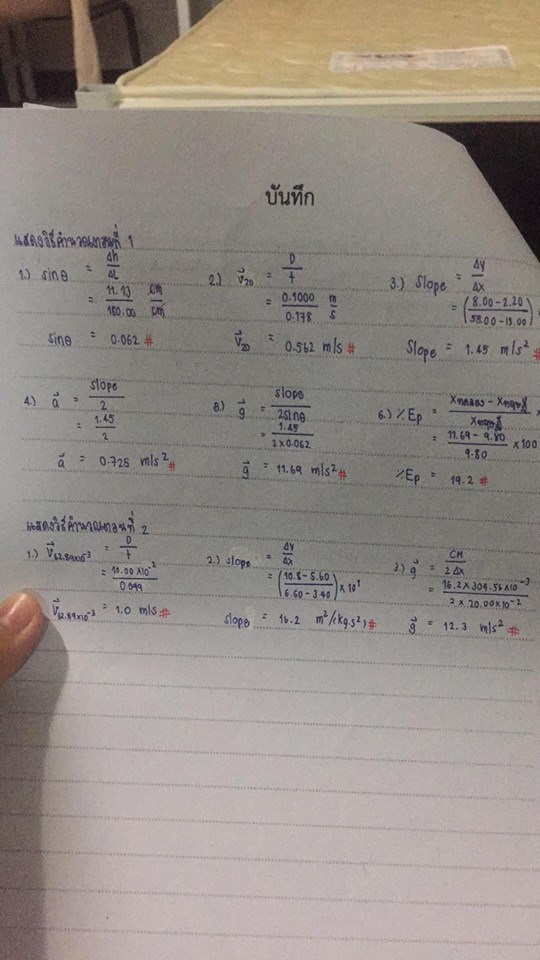 บันทึก
แสดงวิธีคำนวณตอนที่ 1
1.) sinθ = Δh/ΔL
= 11.13/180.00 cm/cm
sinθ = 0.062 #
2.) v⃗20 = D/t
= 0.1000/0.178 m/s
v⃗20 = 0.562 m/s #
3.) Slope = Δy/Δx
= (8.00 - 2.20/53.00 - 13.00)
Slope = 1.45 m/s² #
4.) a⃗ = slope/2
= 1.45/2
a⃗ = 0.725 m/s² #
5.) g⃗ = slope/2sinθ
= 1.45/2 x 0.062
g⃗ = 11.69 m/s² #
6.) %Ep = xทดลอง - xทฤษฎี/xทฤษฎี x
= 11.69 - 9.80/9.80 x 100
%Ep = 19.2 #
แสดงวิธีคำนวณตอนที่ 2
1.) v⃗62.89x10⁻³ = D/t
= 10.00 x 10⁻²/0.099
v⃗62.89x10⁻³ = 1.0 m/s #
2.) slope = Δy/Δx
= (10.8 - 5.60/6.60 - 3.40) x 10¹
slope = 16.2 m²/(kg.s²) #
3.) g⃗ = CM/2Δx
= 16.2 x 304.56 x 10⁻³/2 x 20.00 x 10⁻²
g⃗ = 12.3 m/s² #